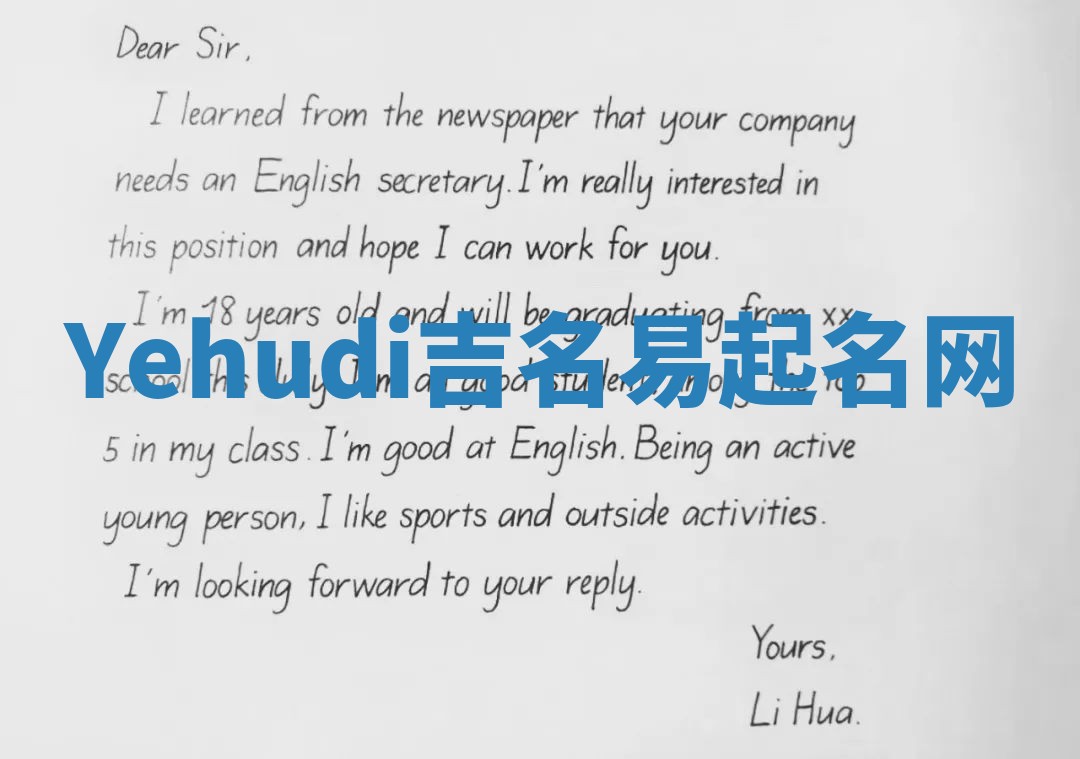 Dear Sir,
I learned from the newspaper that your company
needs an English secretary. I'm really interested in
this position and hope I can work for you.
I'm 18 years old and will be graduating from xx
Yehudi吉名易起名网
school this July. I'm a good student among the top
5 in my class. I'm good at English. Being an active
young person, I like sports and outside activities.
I'm looking forward to your reply.
Yours,
Li Hua.